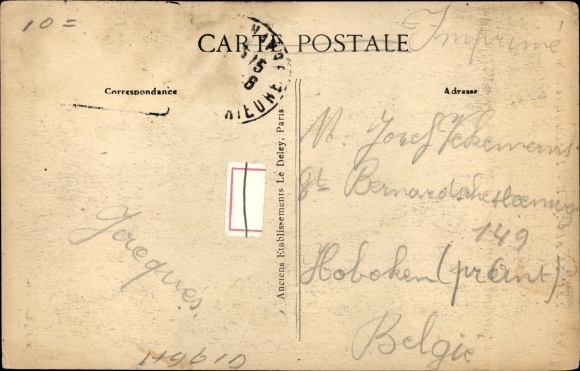 10=
CARTE POSTALE
Imprimé
15
8
Correspondance
Adresse
Anciens Etablissements Le Deley, Paris
M. Josef Vekemans
St Bernardschesteenweg
149
Hoboken (
Jacques.
België